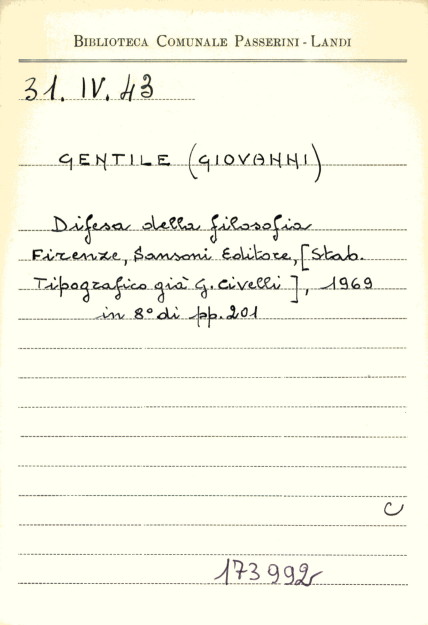 BIBLIOTECA COMUNALE PASSERINI - LANDI
31. IV. 43
GENTILE (GIOVANNI)
Difesa della filosofia
Firenze, Sansoni Editore, [Stab.
Tipografico già G. Civelli], 1969
in 8° di pp. 201
C
173992